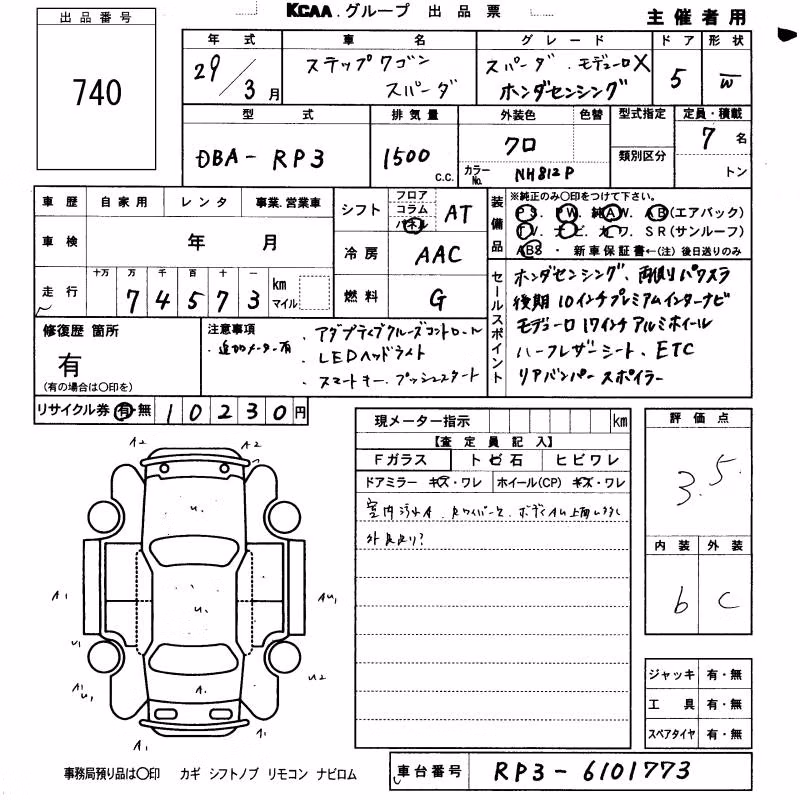 KCAA.グループ 出品票
主催者用
出品番号
740
年式 車名 グレード ドア 形状
29/3月 ステップワゴン スパーダ スパーダ.モデューロX ホンダセンシング 5 W
型式 排気量 外装色 色替 型式指定 定員・積載
DBA-RP3 1500 C.C. クロ 類別区分 7名
カラーNo. NH812P トン
車歴 自家用 レンタ 事業.営業車
シフト フロア コラム パネル AT
装備品 ※純正のみ〇印をつけて下さい。
PS. PW. 純AW. AB(エアバック)
TV. ナビ. カワ. SR(サンルーフ)
ABS ・ 新車保証書←(注)後日送りのみ
車検 年 月
冷房 AAC
走行 十万 万 千 百 十 一 km マイル
74573
燃料 G
セールスポイント
ホンダセンシング、両側パワスラ
後期10インチプレミアムインターナビ
モデューロ17インチアルミホイール
ハーフレザーシート、ETC
リアバンパースポイラー
修復歴 箇所
有
(有の場合は〇印を)
注意事項
・追加メーター有
・アダプティブクルーズコントロール
・LEDヘッドライト
・スマートキー.プッシュスタート
リサイクル券 有・無 10230円
現メーター指示 km
評価点
【査定員記入】
Fガラス トビ石 ヒビワレ
ドアミラー キズ・ワレ ホイール(CP) キズ・ワレ
室内汚れA
3.5
内装 外装
b C
A2 A2
u.
A1 u. AU1
u1 u2
A1 u1 A.
ジャッキ 有・無
工具 有・無
スペアタイヤ 有・無
事務局預り品は〇印 カギ シフトノブ リモコン ナビロム
車台番号 RP3-6101773